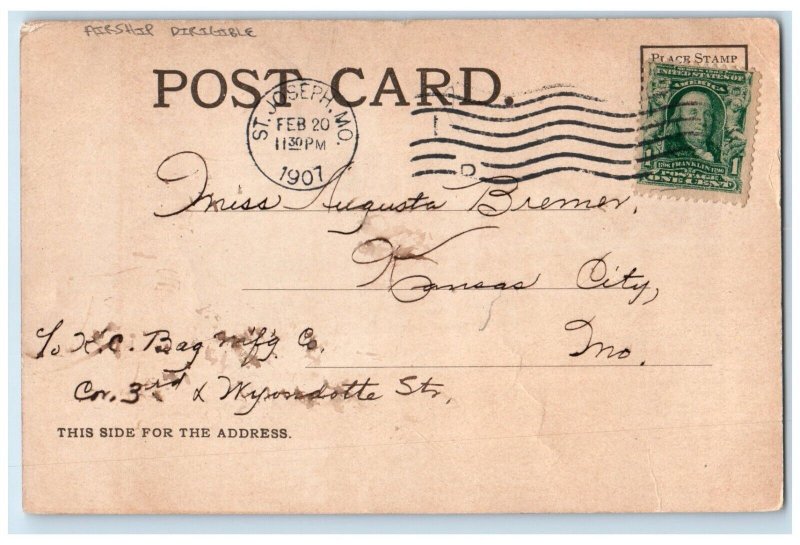 AIRSHIP DIRIGIBLE
POST CARD.
PLACE STAMP
UNITED STATES OF
AMERICA
1 FRANKLIN 1790 1
POSTAGE
ONE CENT
ST. JOSEPH, MO.
FEB 20
11 30 PM
1907
Miss Augusta Bremer,
Kansas City,
Mo.
℅ K.C. Bag Mfg Co.
Cor. 3rd & Wyondotte Str.
THIS SIDE FOR THE ADDRESS.